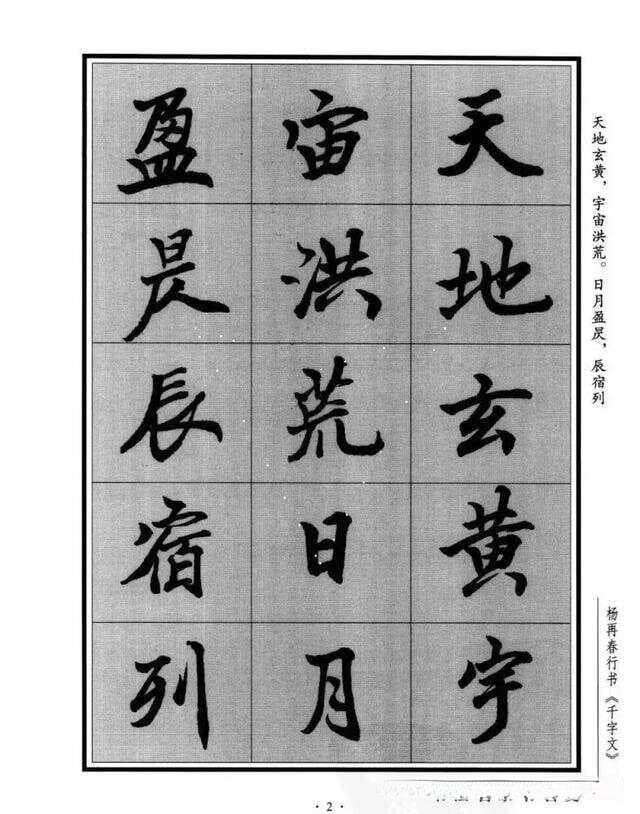 天地玄黄宇
宙洪荒日月
盈昃辰宿列
天地玄黄，宇宙洪荒。日月盈昃，辰宿列
杨再春行书《千字文》
·2·